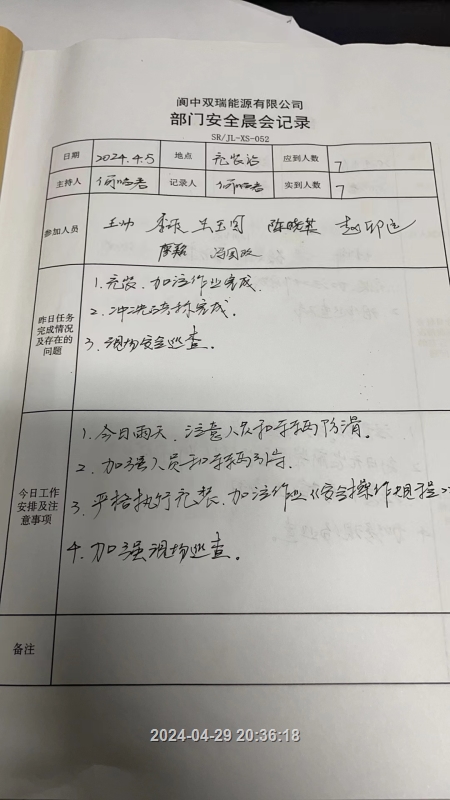 阆中双瑞能源有限公司
部门安全晨会记录
SR/JL-XS-052
日期 2024.4.5 地点 充装站 应到人数 7
主持人 何 记录人 何 实到人数 7
参加人员 王帅 李 王国 陈晓 赵
廖 冯国政
昨日任务完成情况及存在的问题
1.充装、加注作业完成.
2.冲洗 完成.
3.现场安全巡查。
今日工作安排及注意事项
1.今日雨天、注意人员和车辆防滑。
2.加强人员和车辆引导.
3.严格执行充装、加注作业《安全操作规程》
4.加强现场巡查。
备注
2024-04-29 20:36:18